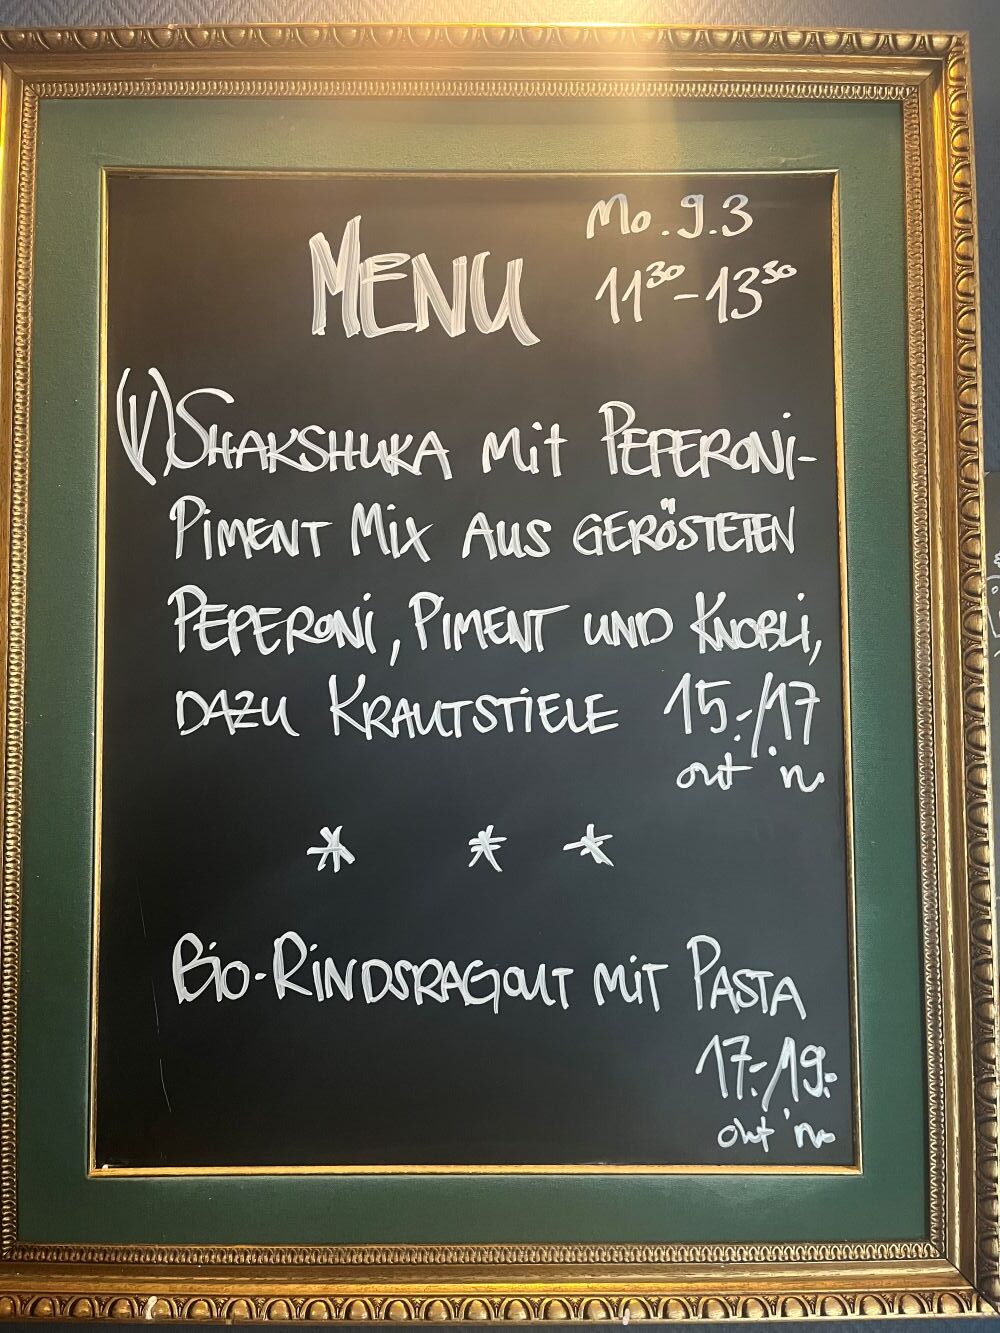 MENU
Mo. 9.3
11³⁰-13³⁰
(V) SHAKSHUKA MIT PEPERONI-
PIMENT MIX AUS GERÖSTETEN
PEPERONI, PIMENT UND KNOBLI,
DAZU KRAUTSTIELE 15.-/17
out in
* * *
BIO-RINDSRAGOUT MIT PASTA
17.-/19.-
out in